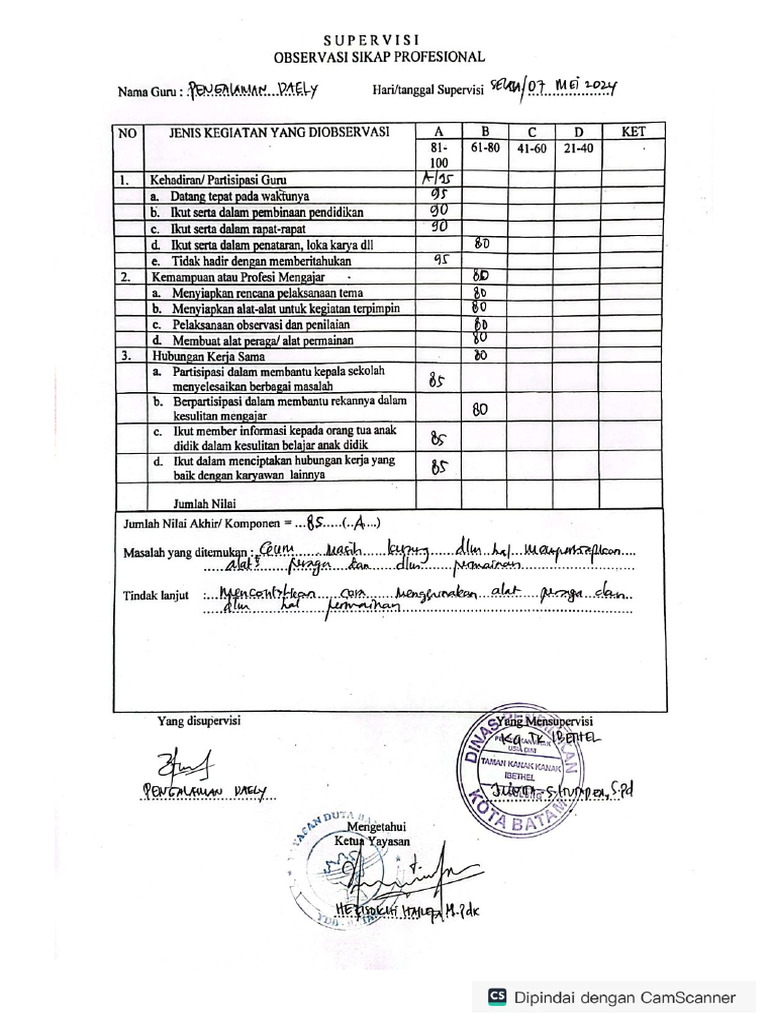 SUPERVISI
OBSERVASI SIKAP PROFESIONAL
Nama Guru : PENGALAMAN DAELY Hari/tanggal Supervisi SELASA/07 MEI 2024
NO JENIS KEGIATAN YANG DIOBSERVASI A B C D KET
81-100 61-80 41-60 21-40
1. Kehadiran/ Partisipasi Guru A/95
a. Datang tepat pada waktunya 95
b. Ikut serta dalam pembinaan pendidikan 90
c. Ikut serta dalam rapat-rapat 90
d. Ikut serta dalam penataran, loka karya dll 80
e. Tidak hadir dengan memberitahukan 95
2. Kemampuan atau Profesi Mengajar 80
a. Menyiapkan rencana pelaksanaan tema 80
b. Menyiapkan alat-alat untuk kegiatan terpimpin 80
c. Pelaksanaan observasi dan penilaian 80
d. Membuat alat peraga/ alat permainan 80
3. Hubungan Kerja Sama 80
a. Partisipasi dalam membantu kepala sekolah
menyelesaikan berbagai masalah 85
b. Berpartisipasi dalam membantu rekannya dalam
kesulitan mengajar 80
c. Ikut member informasi kepada orang tua anak
didik dalam kesulitan belajar anak didik 85
d. Ikut dalam menciptakan hubungan kerja yang
baik dengan karyawan lainnya 85
Jumlah Nilai
Jumlah Nilai Akhir/ Komponen = ...85.....(..A...)
Masalah yang ditemukan : Guru masih kurang dlm hal mempersiapkan
alat² peraga dan dlm permainan
Tindak lanjut : Mencontohkan cara menggunakan alat peraga dan
dlm hal permainan
Yang disupervisi Yang Mensupervisi
Ka. TK IBETHEL
DINAS PENDIDIKAN
USIA DINI
TAMAN KANAK KANAK
IBETHEL
KOTA BATAM
PENGALAMAN DAELY S.Pd
YAYASAN DUTA
Mengetahui
Ketua Yayasan
M.Pdk
CS Dipindai dengan CamScanner